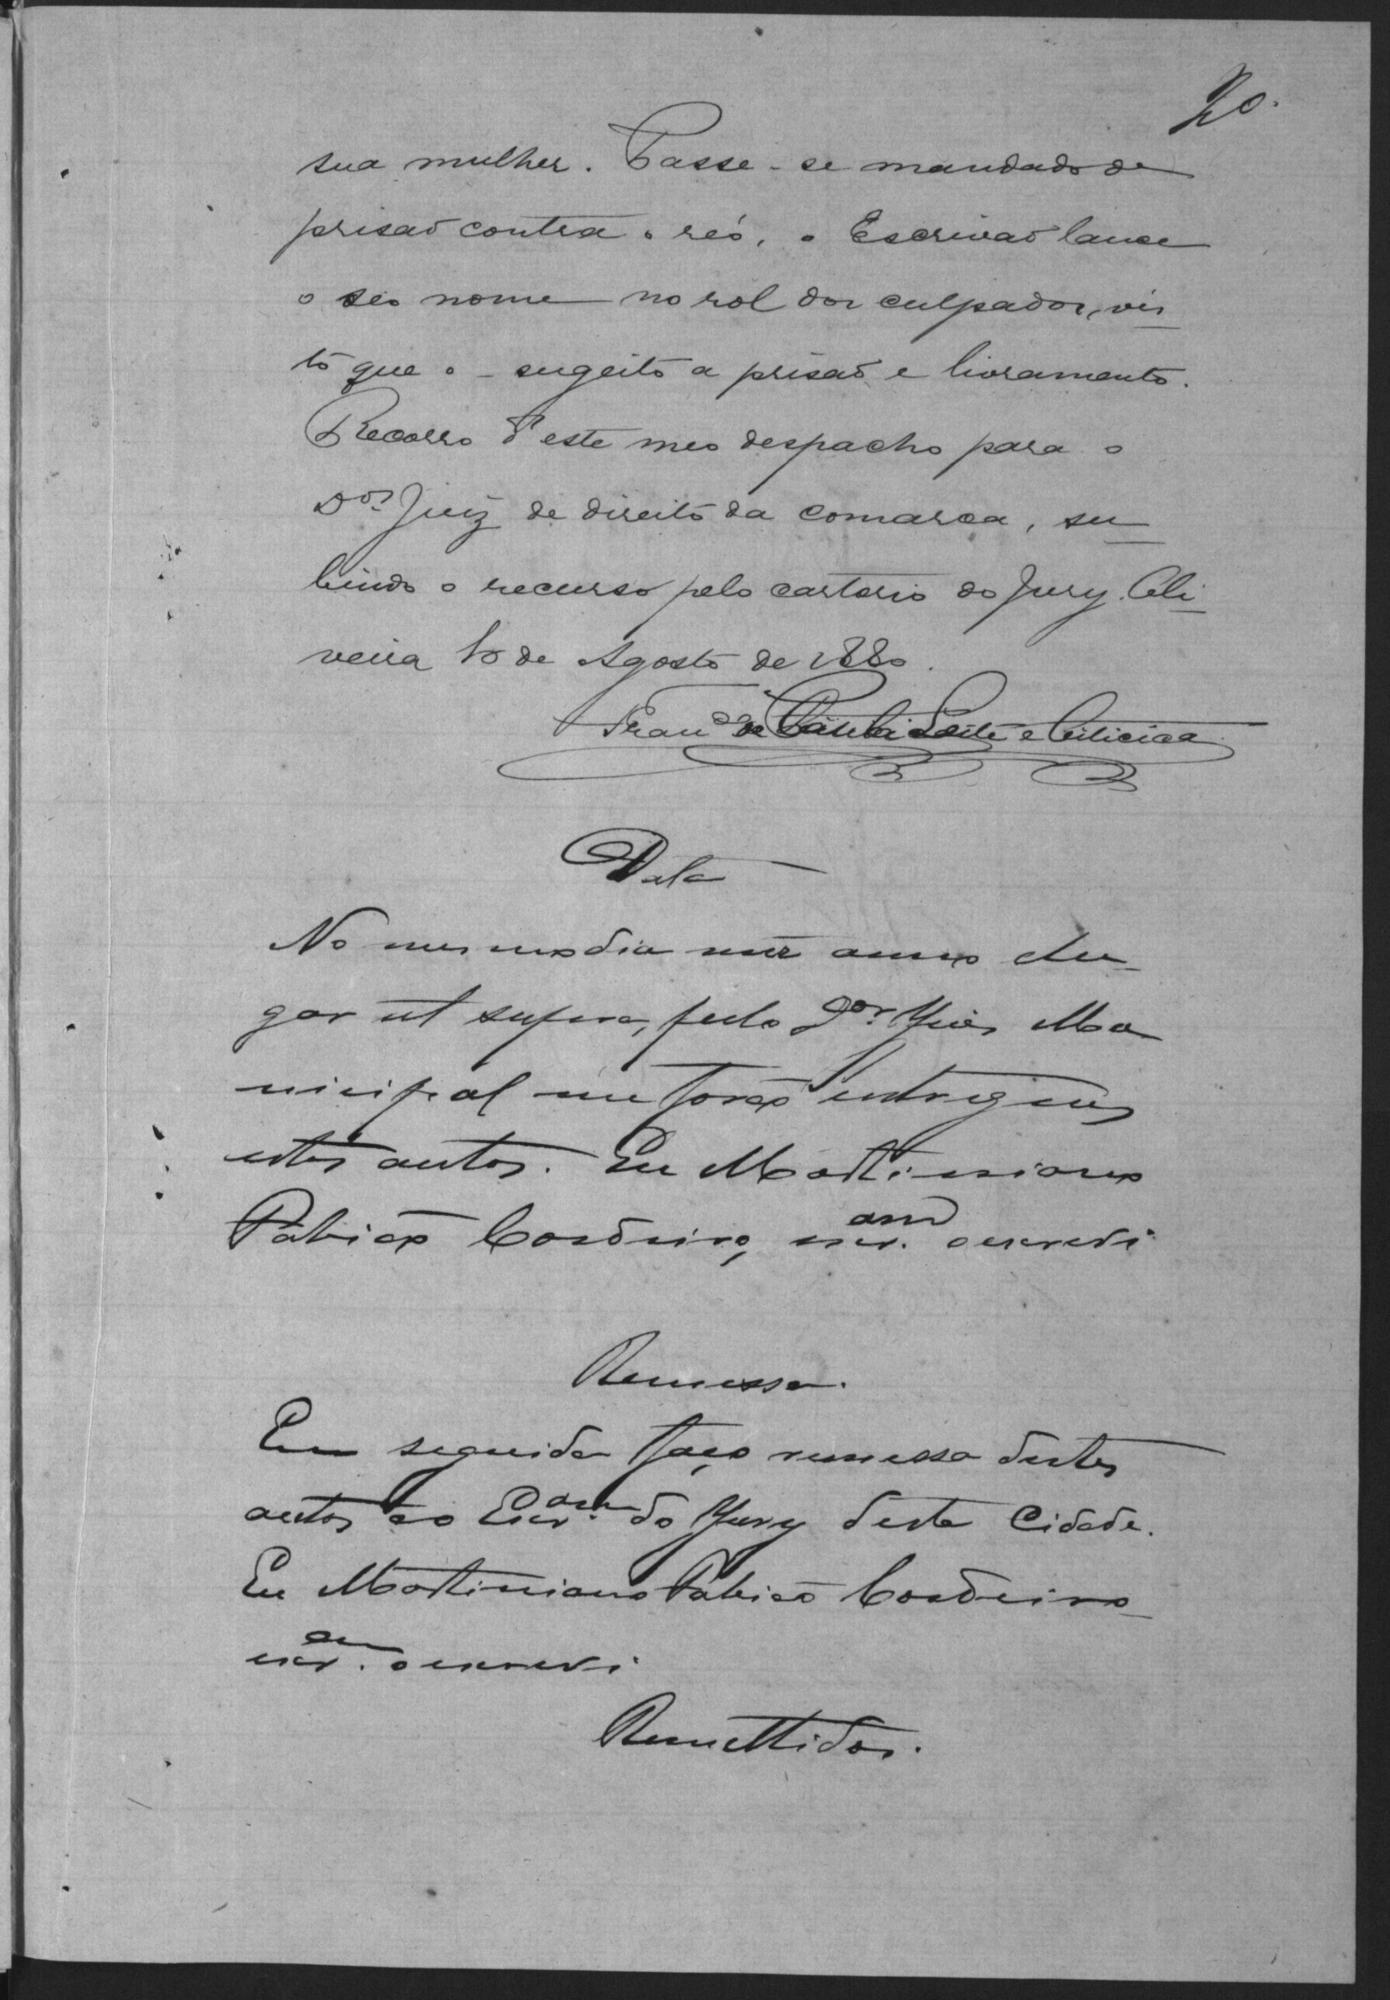 20.
sua mulher. Passe-se mandado de
prisaõ contra o reó, o Escrivaõ lance
o seo nome no rol dos culpados, vis
to que o sugeito a prisaõ e livramento.
Recorro d'este meo despacho para o
Dor. Juiz de direito da comarca, su
bindo o recurso pelo cartorio do Jury. Oli
veira 10 de Agosto de 1880.
Franco de Paula Leite e Oiticica
Data
No mesmo dia mez anno e lu
gar ut supra, pelo Dor. Juiz Mu
nicipal me foraõ entregues
estes autos. Eu Martiniano
Fabiaõ Cordeiro, escr.am o escrevi
Remessa.
Em seguida faço remessa destes
autos ao Escr.am do Jury desta Cidade.
Eu Martiniano Fabiaõ Cordeiro
escr.am o escrevi
Remettidos.